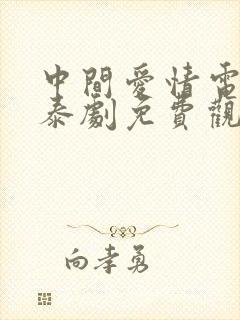 中間愛情電
泰劇免費觀
向孝勇